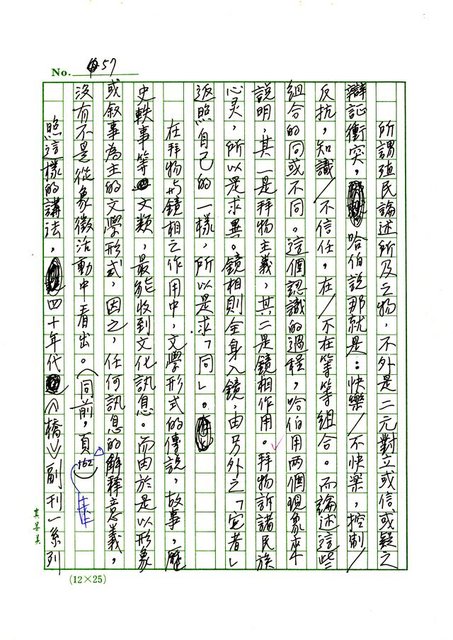 No. 57
所謂殖民論述所及之物，不外是二元對立或信或疑之
辯証衝突，哈伯說那就是：快樂/不快樂，控制/
反抗，知識/不信任，在/不在等等組合。而論述這些
組合的同或不同。這個認識的過程，哈伯用兩個現象來
說明，其一是拜物主義，其二是鏡相作用。拜物訴諸民族
心灵，所以是求異。鏡相則全身入鏡，由另外之「它者」
返照自己的一樣，所以是求「同」。
在拜物与鏡相之作用中，文學形式的傳說，故事，歷
史軼事等文類，最能收到文化訊息。而由於是以形象
或敘事為主的文學形式，因之，任何訊息的解釋意義，
沒有不是從象徵活動中看出。（同前，頁162）
照這樣的講法，四十年代《橋》副刊一系列
(12×25)